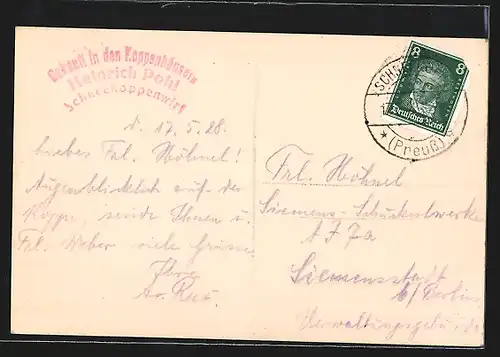 Gekauft in den Koppenhäusern
Heinrich Pohl
Schneekoppenwirt
d. 17.5.28.
Liebes Frl. Möhnel!
Augenblicklich auf der
Koppe, sende Ihnen u.
Frl. Weber viele Grüsse
Ihre
8 8
Deutsches Reich
SCHN
(Preuß)
Frl. Möhnel
Siemens-Schuckertwerke
Siemensstadt
b/Berlin
Verwaltungsgebäude